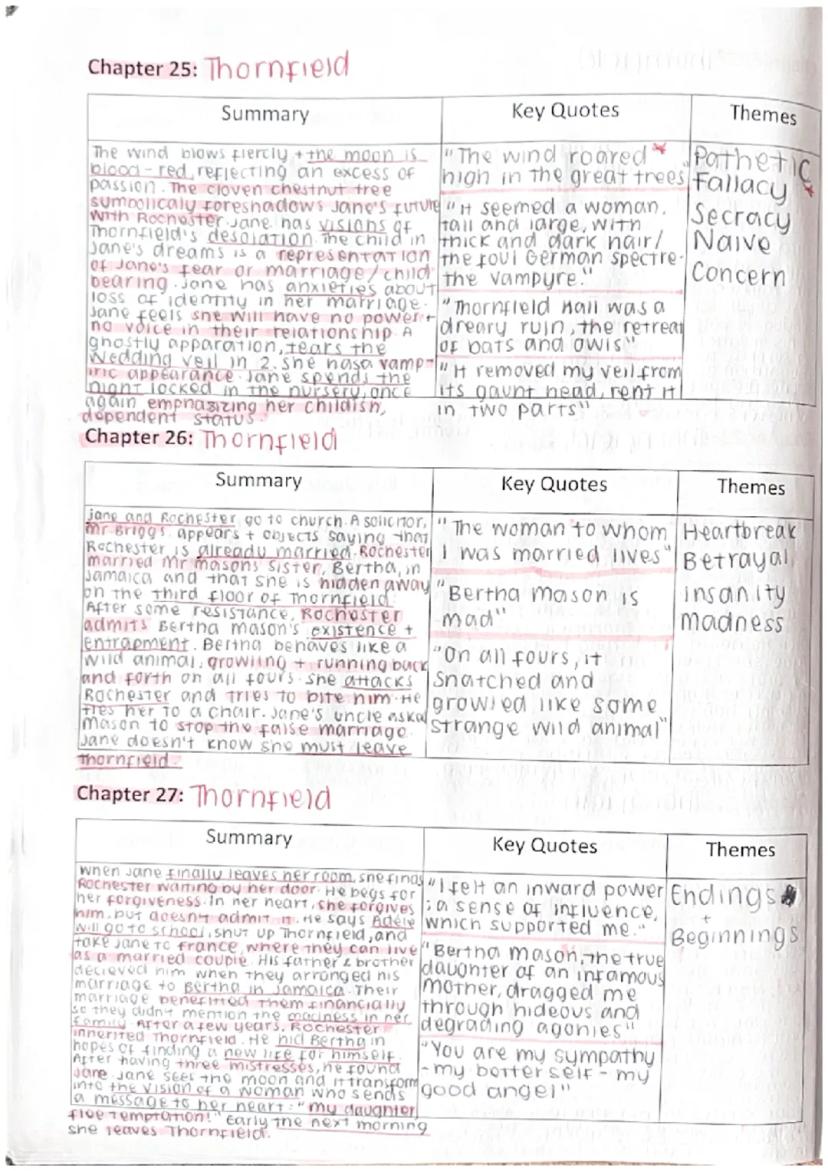 Chapter 25: Thornfield
Summary
The wind blows fiercly + the moon is
blood-red, reflecting an excess of
passion. The cloven chestnut tree
symbolicaly foreshadows Jane's future
with Rochester. Jane has visions of
Thornfield's desolation. The child in
Jane's dreams is a representation
of Jane's fear or marriage/child
bearing. Jane has anxieties about
loss of identity in her marriage.
Jane feels she will have no power +
no voice in their relationship. A
ghostly apparation, tears the
wedding veil in 2. She has a vamp-
iric appearance. Jane spends the
night locked in the nursery, once
again emphasizing her childish,
dependent status.
Key Quotes
"The wind roared
high in the great trees
"It seemed a woman,
tall and large, with
thick and dark hair/
the foul German spectre-
the vampyre."
"Thornfield Hall was a
dreary ruin, the retreat
of bats and owls"
"It removed my veil from
its gaunt head, rent it
in two parts"
Themes
Pathetic
Fallacy
Secracy
Naive
Concern
Chapter 26: Thornfield
Summary
Jane and Rochester go to church. A solicitor,
Mr Briggs, appears + objects saying that
Rochester is already married. Rochester
married Mr Masons sister, Bertha, in
Jamaica and that she is hidden away
on the third floor of Thornfield.
After some resistance, Rochester
admits Bertha Mason's existence +
entrapment. Bertha behaves like a
wild animal, growling + running back
and forth on all fours. She attacks
Rochester and tries to bite him. He
ties her to a chair. Jane's uncle asked
Mason to stop the false marriage.
Jane doesn't know she must leave
Thornfield.
Key Quotes
"The woman to whom
I was married lives"
"Bertha Mason is
mad"
"On all fours, it
snatched and
growled like some
strange wild animal"
Themes
Heartbreak
Betrayal
insanity
madness
Chapter 27: Thornfield
Summary
When Jane finally leaves her room, she finds
Rochester waiting by her door. He begs for
her forgiveness. In her heart, she forgives
him, but doesn't admit it. He says Adèle
will go to school, shut up Thornfield, and
take Jane to France, where they can live
as a married couple. His father & brother
decieved him when they arranged his
marriage to Bertha in Jamaica. Their
marriage benefitted them financially
so they didn't mention the madness in her
family. After a few years, Rochester
inherited Thornfield. He hid Bertha in
hopes of finding a new life for himself.
After having three mistresses, he found
Jane. Jane sees the moon and it transform
into the vision of a woman who sends
a message to her heart: "my daughter,
flee temptation!" Early the next morning
she leaves Thornfield.
Key Quotes
"I felt an inward power
; a sense of influence,
which supported me."
"Bertha Mason, the true
daughter of an infamous
mother, dragged me
through hideous and
degrading agonies"
"You are my sympathy
-my better self - my
good angel"
Themes
Endings
+
Beginnings